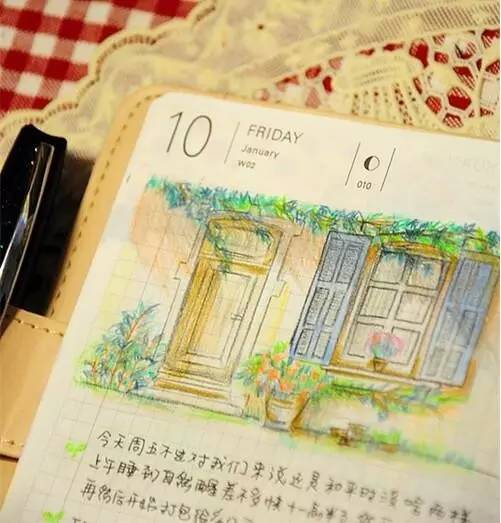 10
FRIDAY
January
W02
010
今天周五不过对我们来说这是和平时没啥两样
上午睡到自然醒差不多快十一点半了
再然后开始打包给